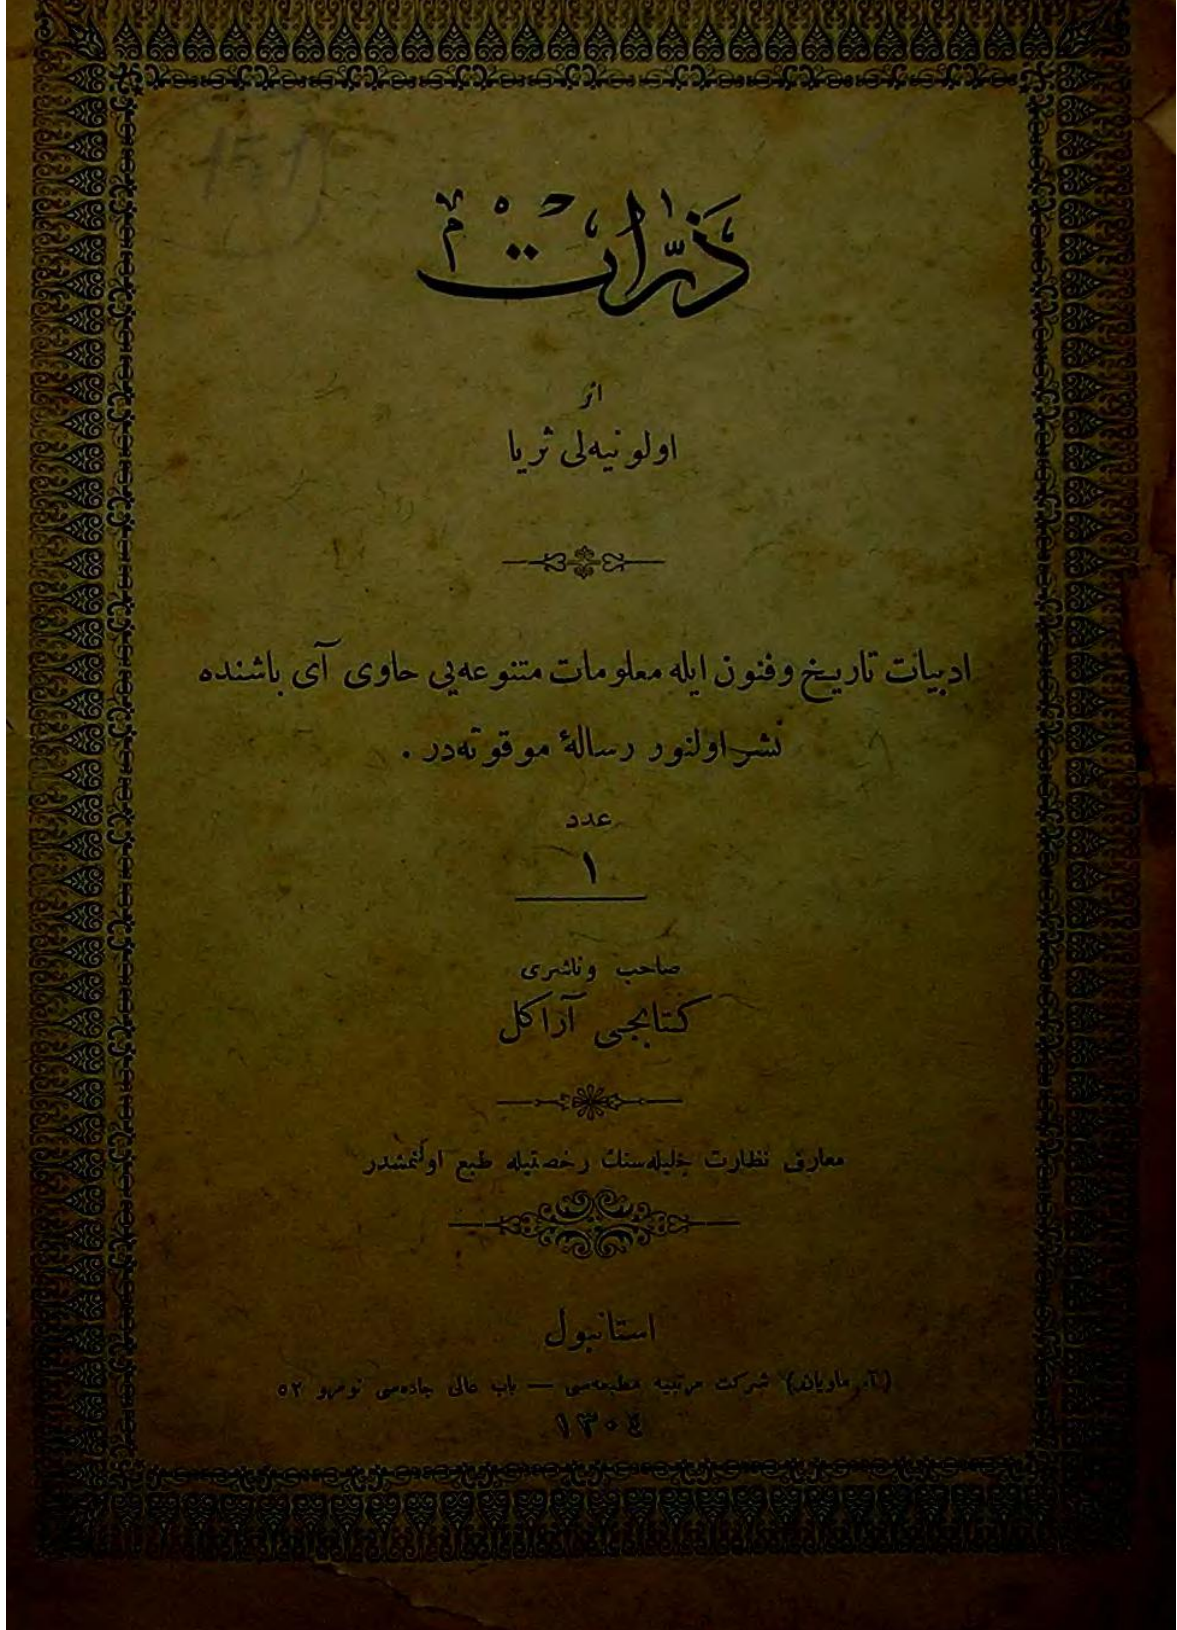 ذرّات
اثر
اولونيه‌لى ثريا
ادبيات تاريخ وفنون ايله معلومات متنوعه‌يى حاوى آى باشنده
نشر اولنور رسالهٔ موقوته‌در .
عدد
١
صاحب وناشرى
كتابجى آراكل
معارف نظارت جليله‌سنك رخصتيله طبع اولنمشدر
استانبول
(آ. ماويان) شركت مرتبيه مطبعه‌سى — باب عالى جاده‌سى نومرو ٥٢
١٣٠٤